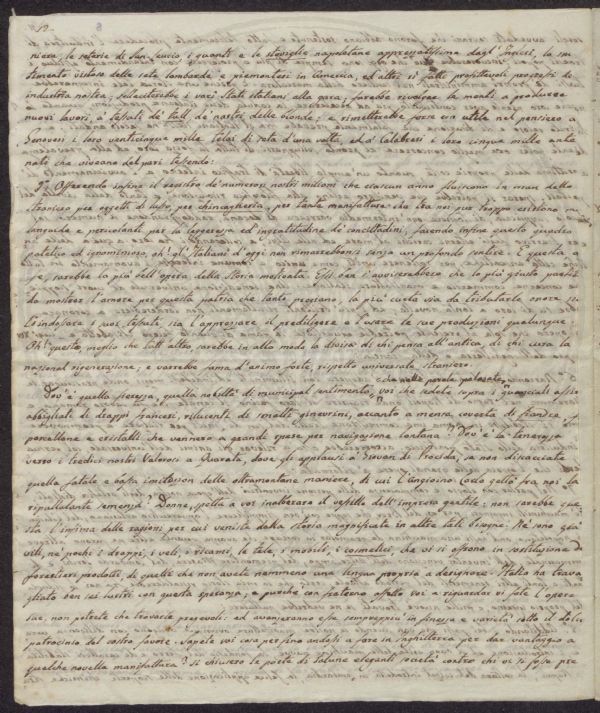 12
niera, le seterie di San Leucio, i guanti e le stoviglie napoletane apprezzatissime dagl' Inglesi, la
stimento vistoso delle sete lombarde e piemontesi in America, ed altri sì fatti profittevoli progressi d'
industria nostra, solleciterebbe i varj Stati italiani alla gara; farebbe rivolger la mente a produrre
nuovi lavori, a tessuti de' tutti de' nostri delle bionde; e rimetterebbe forse con utile nel pensiero a
Genovesi i loro venticinque mille telai di seta d'una volta, ed a' Calabresi i loro cinque mille ante
nati che vivevano del pari tessendo:
Offerendo infine il registro de' numerosi nostri milioni che ciascun anno fluiscono in man dello
straniero per oggetti di lusso, per chincaglieria, per tante manifatture che tra noi pur troppo esistono
languide e pericolanti per la leggerezza ed ingratitudine de' concittadini, facendo infine questo quadro
patetico ed ignominioso, oh! gl' Italiani d'oggi non rimarrebbonsi senza un profondo sentire. E questa a
se, sarebbe la più bell'opera della Storia mostrata. Ella ben l'avviserebbe che lo più giusto
da mostrar l'amore per questa patria che tanto pregiano, la più certa via da tributarle onore
l'indossare i suoi tessuti sia l'apprezzare il prediligere e l'usare le sue produzioni qualunque
Oh! questo, meglio che tutt'altro, sarebbe in alto modo la divisa di chi pensa all'antica, di chi cura la
nazional rigenerazione, e varrebbe fama d'animo forte, rispetto universale straniero.
Dov'è quella fierezza, quella nobiltà di municipal sentimento, che nelle parole palesate, voi che sedete sopra i guanciali assir
abbigliati di drappi francesi, rilucenti di smalti ginevrini, accanto a mensa coverta di
porcellane e cristalli che vennero a grandi spese per navigazione lontana? Dov'è la tenerezza
verso i tredici nostri Valorosi a Quarata, dove gli applausi a Giovan di Procida, se non discacciate
quella fatale e bassa imitazion delle oltramontane maniere, di cui l'Angioino Carlo gettò fra noi la
ripullulante semenza? Donne, spetta a voi inalberare il vessillo dell'impresa gentile: non sarebbe que
sta l'infima delle ragioni per cui veniste dalla storia magnificate in altre tali bisogne. Nè sono già
vili, nè pochi i drappi, i veli, i ricami, le tele, i mobili, i cosmetici, che vi si offrono in sostituzione di
forestieri prodotti, di quelli che non avete nemmeno una lingua propria a descrivere. Italia ha trava
gliato ben sei lustri con questa speranza; e purchè con fraterno affetto voi a riguardar vi fate l'opere
sue, non potrete che trovarle pregevoli: ed avanzeranno esse sempreppiù in finezza e varietà sotto il dolce
patrocinio del vostro favore. Sapete voi cosa persino andossi a fare in Inghilterra per dar vantaggio a
qualche novella manifattura? si chiusero le porte di talune eleganti società contro chi vi si fosse pre